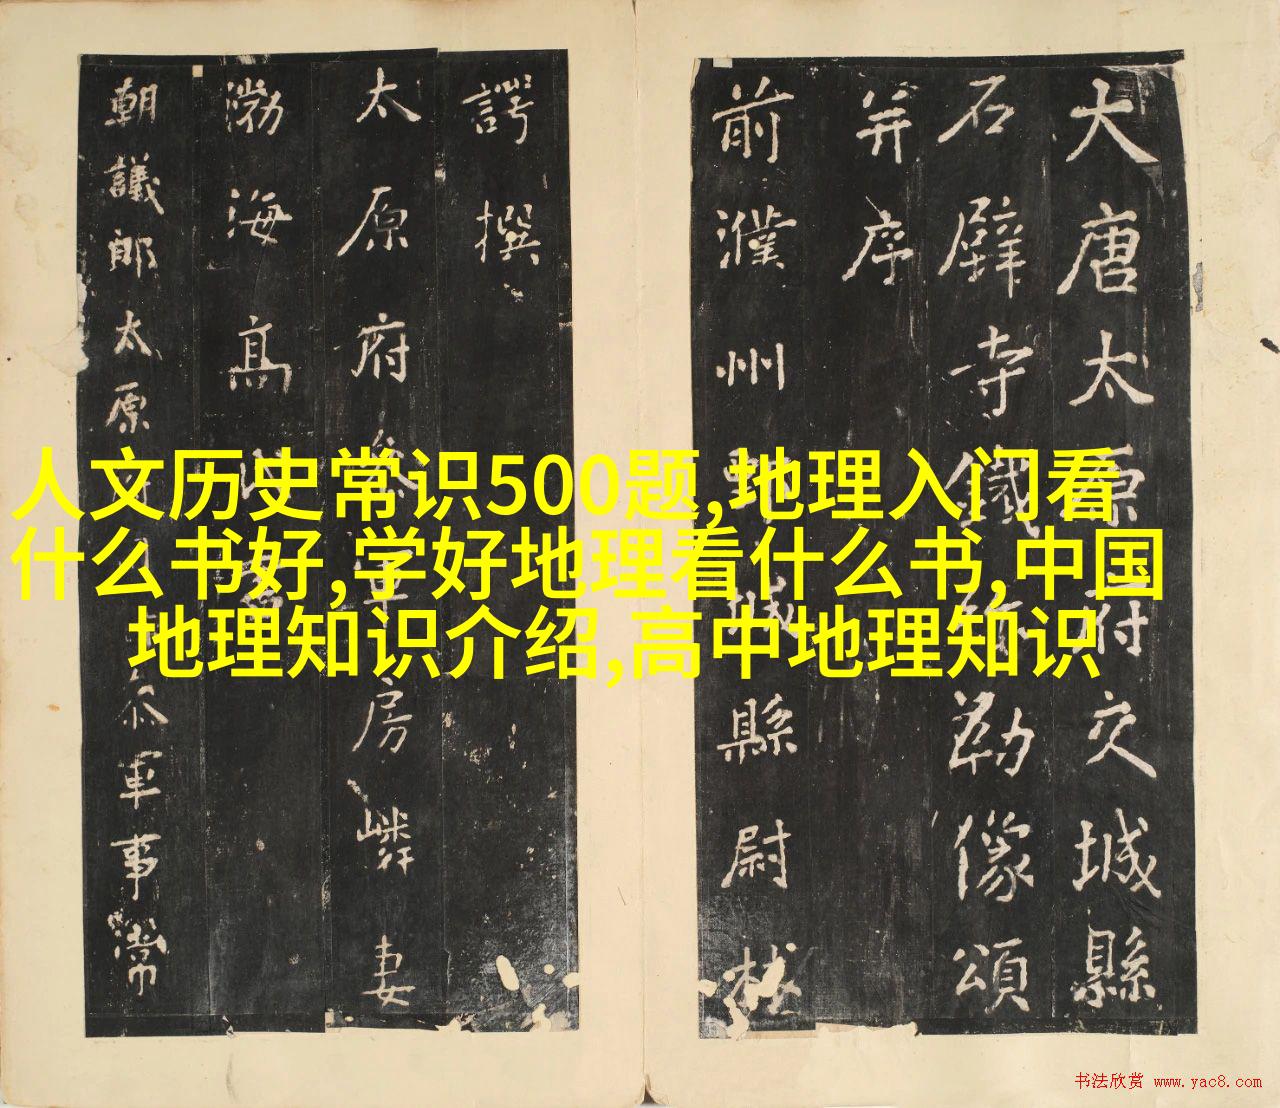 人文历史常识500题,地理入门看
什么书好,学好地理看什么书,中国
地理知识介绍,高中地理知识
大唐太原府交城縣
石壁寺鐵勒像頌
并序
前濮州城縣尉林
諤撰
太原府房嶙妻
渤海高
朝議郎太原軍事常
书法欣赏 www.yac8.com